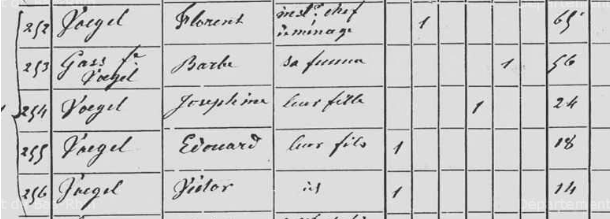 252 Voegel Florent inst.r chef de ménage 1 65
253 Gass fe Voegel Barbe sa femme 1 56
254 Voegel Josephine leur fille 1 24
255 Voegel Edouard leur fils 1 18
256 Voegel Victor id 1 14